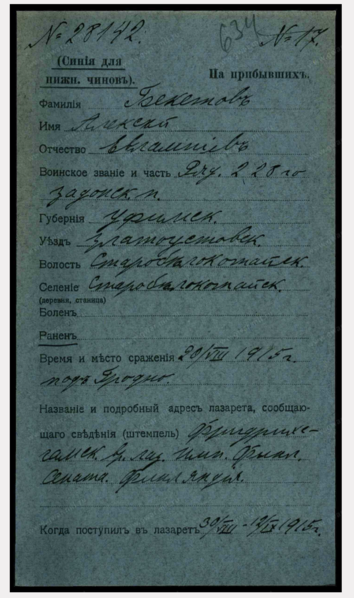 № 28142. 634 № 17.
(Синія для
нижн. чиновъ).
На прибывшихъ.
Фамилія Бекетовъ
Имя Алексѣй
Отчество Евгампіевъ
Воинское званіе и часть Ряд. 228 го
задонск. п.
Губернія Уфимск.
Уѣздъ Златоустовск.
Волость Старобѣлокотайск.
Селеніе Старобѣлокотайск.
(деревня, станица)
Боленъ
Раненъ
Время и мѣсто сраженія 20/VIII 1915 г.
подъ Гродно.
Названіе и подробный адресъ лазарета, сообщаю-
щаго свѣдѣнія (штемпель) Фридрихс-
гамск. лаз. Имп. Финл.
Сената. Финляндія.
Когда поступилъ въ лазаретъ 30/VIII - 12/IX 1915 г.